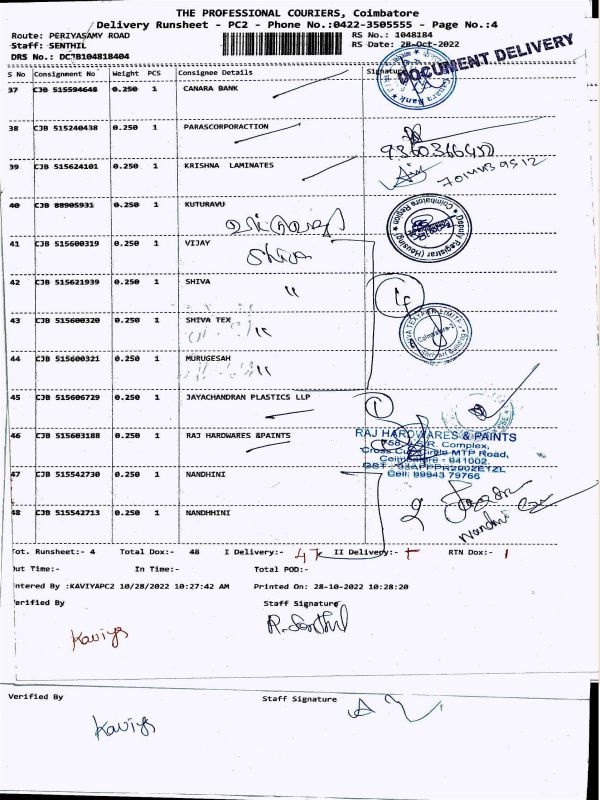 THE PROFESSIONAL COURIERS, Coimbatore
Delivery Runsheet - PC2 - Phone No.:0422-3505555 - Page No.:4
Route: PERIYASAMY ROAD RS No.: 1048184
Staff: SENTHIL RS Date: 28-Oct-2022
DRS No.: DCJB104818404
DOCUMENT DELIVERY
S No Consignment No Weight PCS Consignee Details Signature
37 CJB 515594648 0.250 1 CANARA BANK
38 CJB 515240438 0.250 1 PARASCORPORACTION
39 CJB 515624101 0.250 1 KRISHNA LAMINATES
7014439512
40 CJB 88905931 0.250 1 KUTURAVU
Deputy Registrar (Housing)
Coimbatore Region
41 CJB 515600319 0.250 1 VIJAY
Shiva
42 CJB 515621939 0.250 1 SHIVA
"
43 CJB 515600320 0.250 1 SHIVA TEX
"
Coimbatore-2
44 CJB 515600321 0.250 1 MURUGESAH
"
45 CJB 515606729 0.250 1 JAYACHANDRAN PLASTICS LLP
1
46 CJB 515603188 0.250 1 RAJ HARDWARES &PAINTS
RAJ HARDWARES & PAINTS
Complex,
MTP Road,
Coimbatore - 641002.
Cell: 99943 79766
47 CJB 515542730 0.250 1 NANDHINI
2
48 CJB 515542713 0.250 1 NANDHHINI
Nandhni
Tot. Runsheet:- 4 Total Dox:- 48 I Delivery:- 47 II Delivery:- RTN Dox:- 1
Out Time:- In Time:- Total POD:-
Entered By :KAVIYAPC2 10/28/2022 10:27:42 AM Printed On: 28-10-2022 10:28:20
Verified By Staff Signature
Kaviya R. Senthil
Verified By Staff Signature
Kaviya